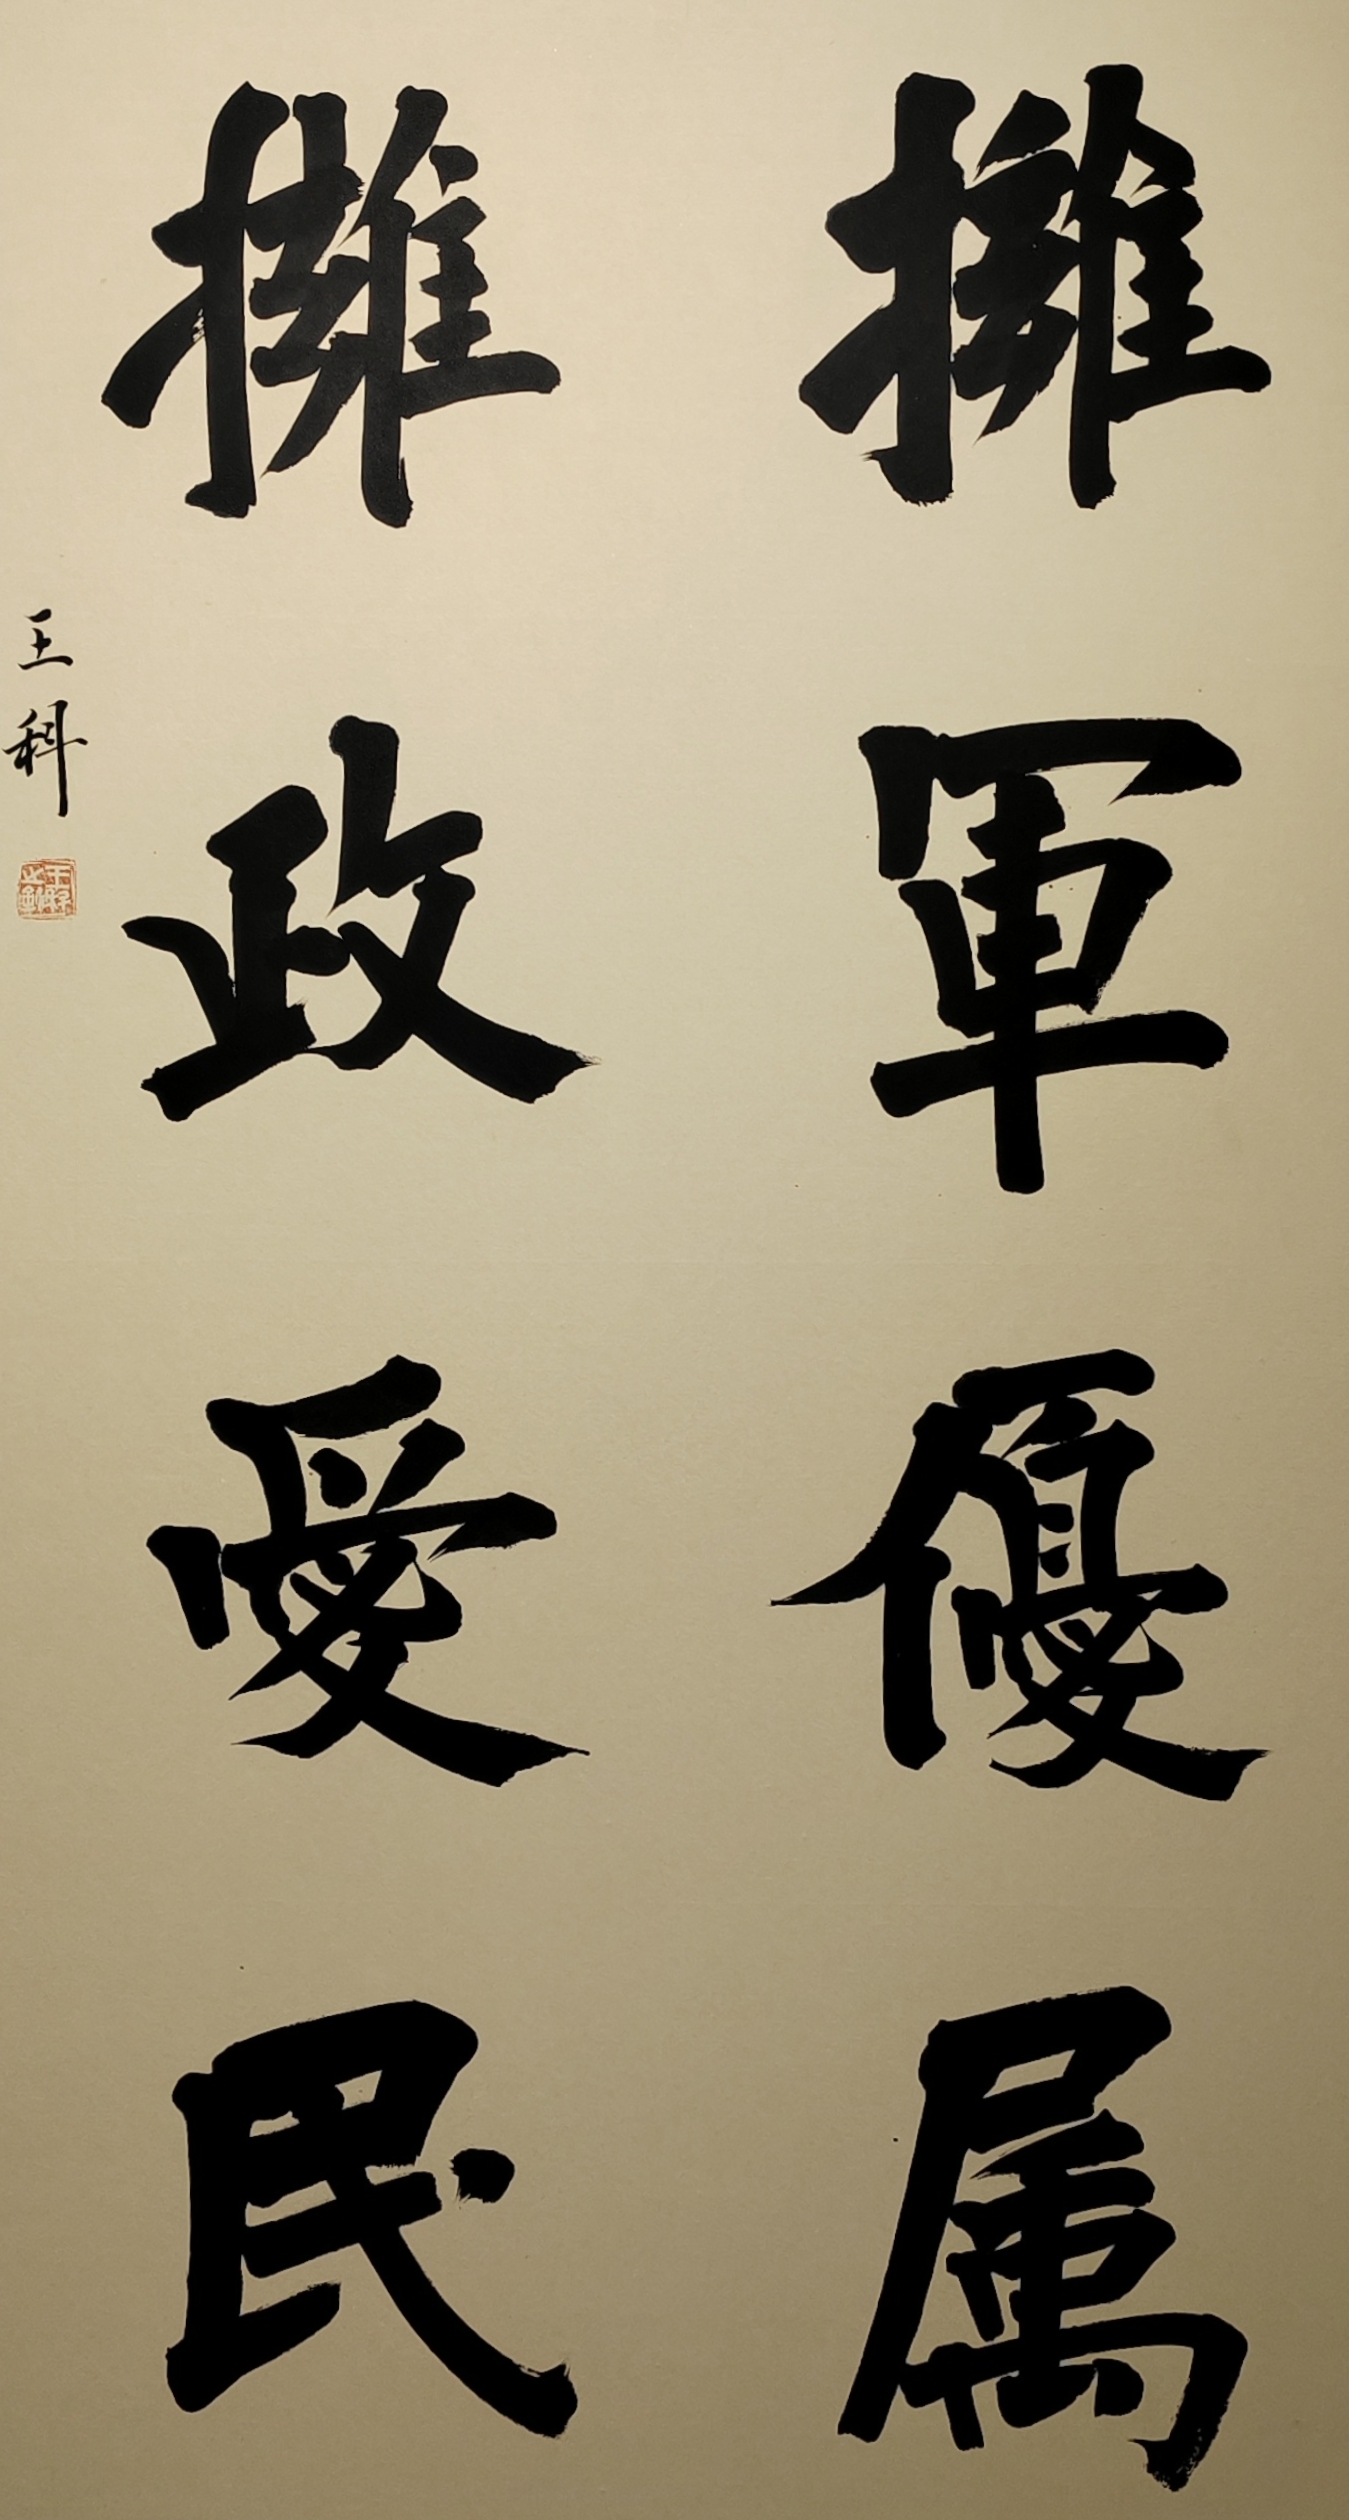 擁軍優属
擁政愛民
王科